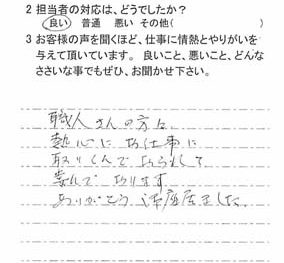 2 担当者の対応は、どうでしたか?
良い 普通 悪い その他( )
3 お客様の声を聞くほど、仕事に情熱とやりがいを
与えて頂いています。 良いこと、悪いこと、どんな
ささいな事でもぜひ、お聞かせ下さい。
職人さんの方は
熱心にお仕事に
取りくんでおられして
喜んでおります
ありがとう、座居ました。